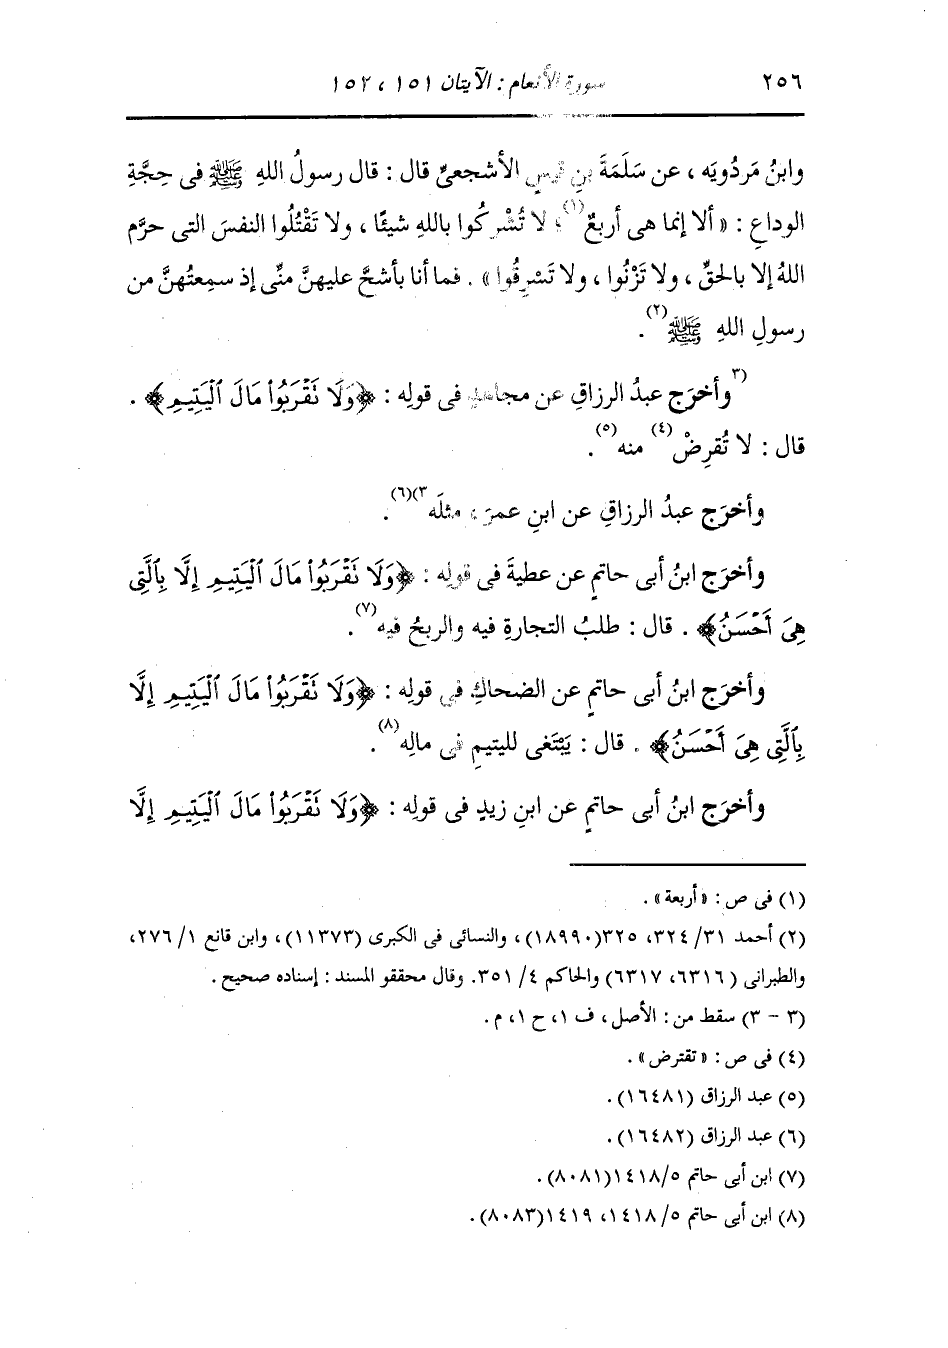 ٢٥٦ سورة الأنعام : الآيتان ١٥١ ، ١٥٢
وابنُ مَردُويَه ، عن سَلَمَةَ بنِ قيسٍ الأشجعىِّ قال : قال رسولُ اللهِ ﷺ فى حِجَّةِ
الوداعِ : « ألا إنما هى أربعٌ(١) ؛ لا تُشْرِكوا باللهِ شيئًا ، ولا تَقْتُلُوا النفسَ التى حرَّم
اللهُ إلا بالحقِّ ، ولا تَزْنُوا ، ولا تَسْرِقُوا » . فما أنا بأشحَّ عليهنَّ منِّى إذ سمِعتُهنَّ من
رسولِ اللهِ ﷺ(٢) .
(٣وأخرَج عبدُ الرزاقِ عن مجاهدٍ فى قولِه : ﴿وَلَا نَقْرَبُواْ مَالَ ٱلْيَتِيمِ﴾ .
قال : لا تُقرِضْ(٤) منه(٥) .
وأخرَج عبدُ الرزاقِ عن ابنِ عمرَ ، مثلَه٣)(٦) .
وأخرَج ابنُ أبى حاتمٍ عن عطيةَ فى قولِه : ﴿وَلَا نَقْرَبُواْ مَالَ ٱلْيَتِيمِ إِلَّا بِٱلَّتِى
هِىَ أَحْسَنُ﴾ . قال : طلبُ التجارةِ فيه والربحُ فيه(٧) .
وأخرَج ابنُ أبى حاتمٍ عن الضحاكِ فى قولِه : ﴿وَلَا نَقْرَبُواْ مَالَ ٱلْيَتِيمِ إِلَّا
بِٱلَّتِى هِىَ أَحْسَنُ﴾ . قال : يَبْتَغى لليتيمِ فى مالِه(٨) .
وأخرَج ابنُ أبى حاتمٍ عن ابنِ زيدٍ فى قولِه : ﴿وَلَا نَقْرَبُواْ مَالَ ٱلْيَتِيمِ إِلَّا
(١) فى ص : « أربعة » .
(٢) أحمد ٣١/ ٣٢٤، ٣٢٥(١٨٩٩٠)، والنسائى فى الكبرى (١١٣٧٣)، وابن قانع ١/ ٢٧٦،
والطبرانى (٦٣١٦، ٦٣١٧) والحاكم ٤/ ٣٥١. وقال محققو المسند : إسناده صحيح .
(٣ - ٣) سقط من : الأصل، ف ١، ح ١، م .
(٤) فى ص : « تقترض » .
(٥) عبد الرزاق (١٦٤٨١) .
(٦) عبد الرزاق (١٦٤٨٢) .
(٧) ابن أبى حاتم ٥/ ١٤١٨(٨٠٨١) .
(٨) ابن أبى حاتم ٥/ ١٤١٨، ١٤١٩(٨٠٨٣) .